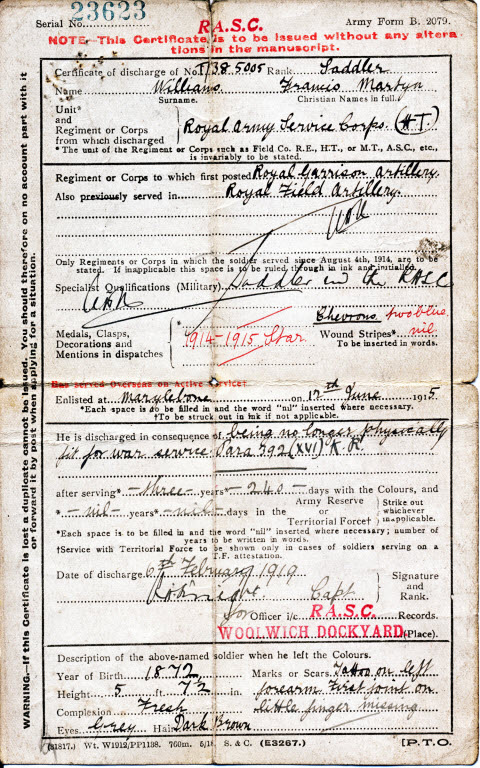 Serial No. 23623
R.A.S.C.
Army Form B. 2079.
NOTE.—This Certificate is to be issued without any altera
tions in the manuscript.
Certificate of discharge of No. T/385005 Rank Saddler
Name Williams Francis Martyn
Surname. Christian Names in full.
Unit*
and
Regiment or Corps
from which discharged
Royal Army Service Corps. (H.T.)
*The unit of the Regiment or Corps such as Field Co. R.E., H.T., or M.T., A.S.C., etc.,
is invariably to be stated.
Regiment or Corps to which first posted Royal Garrison Artillery.
Also previously served in Royal Field Artillery.
Only Regiments or Corps in which the soldier served since August 4th, 1914, are to be
stated. If inapplicable this space is to be ruled through in ink and initialled.
Specialist Qualifications (Military) Saddler in the RASC
Chevrons two blue
Medals, Clasps,
Decorations and
Mentions in dispatches
1914-1915 Star
Wound Stripes* nil
To be inserted in words.
Has served Overseas on Active Service†
Enlisted at Marylebone on 12th June 1915
*Each space is to be filled in and the word "nil" inserted where necessary.
†To be struck out in ink if not applicable.
He is discharged in consequence of being no longer physically
fit for war service. Para 392 (XVI) K.R.
after serving* -three- years* -240- days with the Colours, and
* -nil- years* -nil- days in the
Army Reserve
or
Territorial Force†
Strike out
whichever
inapplicable.
*Each space is to be filled in and the word "nil" inserted where necessary; number of
years to be written in words.
†Service with Territorial Force to be shown only in cases of soldiers serving on a
T.F. attestation.
Date of discharge 6th February 1919
Capt
Signature
and
Rank.
for Officer i/c R.A.S.C. Records.
WOOLWICH DOCKYARD. (Place).
Description of the above-named soldier when he left the Colours.
Year of Birth 1872
Marks or Scars. Tattoo on left
Height 5 ft 7½ in.
forearm First joint on
Complexion Fresh
little finger missing
Eyes Grey Hair Dark Brown
(31817.) Wt. W1912/PP1138. 760m. 5/18. S. & C. (E3267.) [P.T.O.
WARNING.—If this Certificate is lost a duplicate cannot be issued. You should therefore on no account part with it
or forward it by post when applying for a situation.